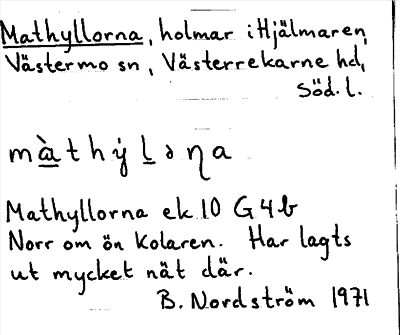 Mathyllorna, holmar i Hjälmaren,
Västermo sn, Västerrekarne hd,
Söd. l.
m à t h ẏ l ə ɳ a
Mathyllorna ek. 10 G 4 b
Norr om ön Kolaren. Har lagts
ut mycket nät där.
B. Nordström 1971